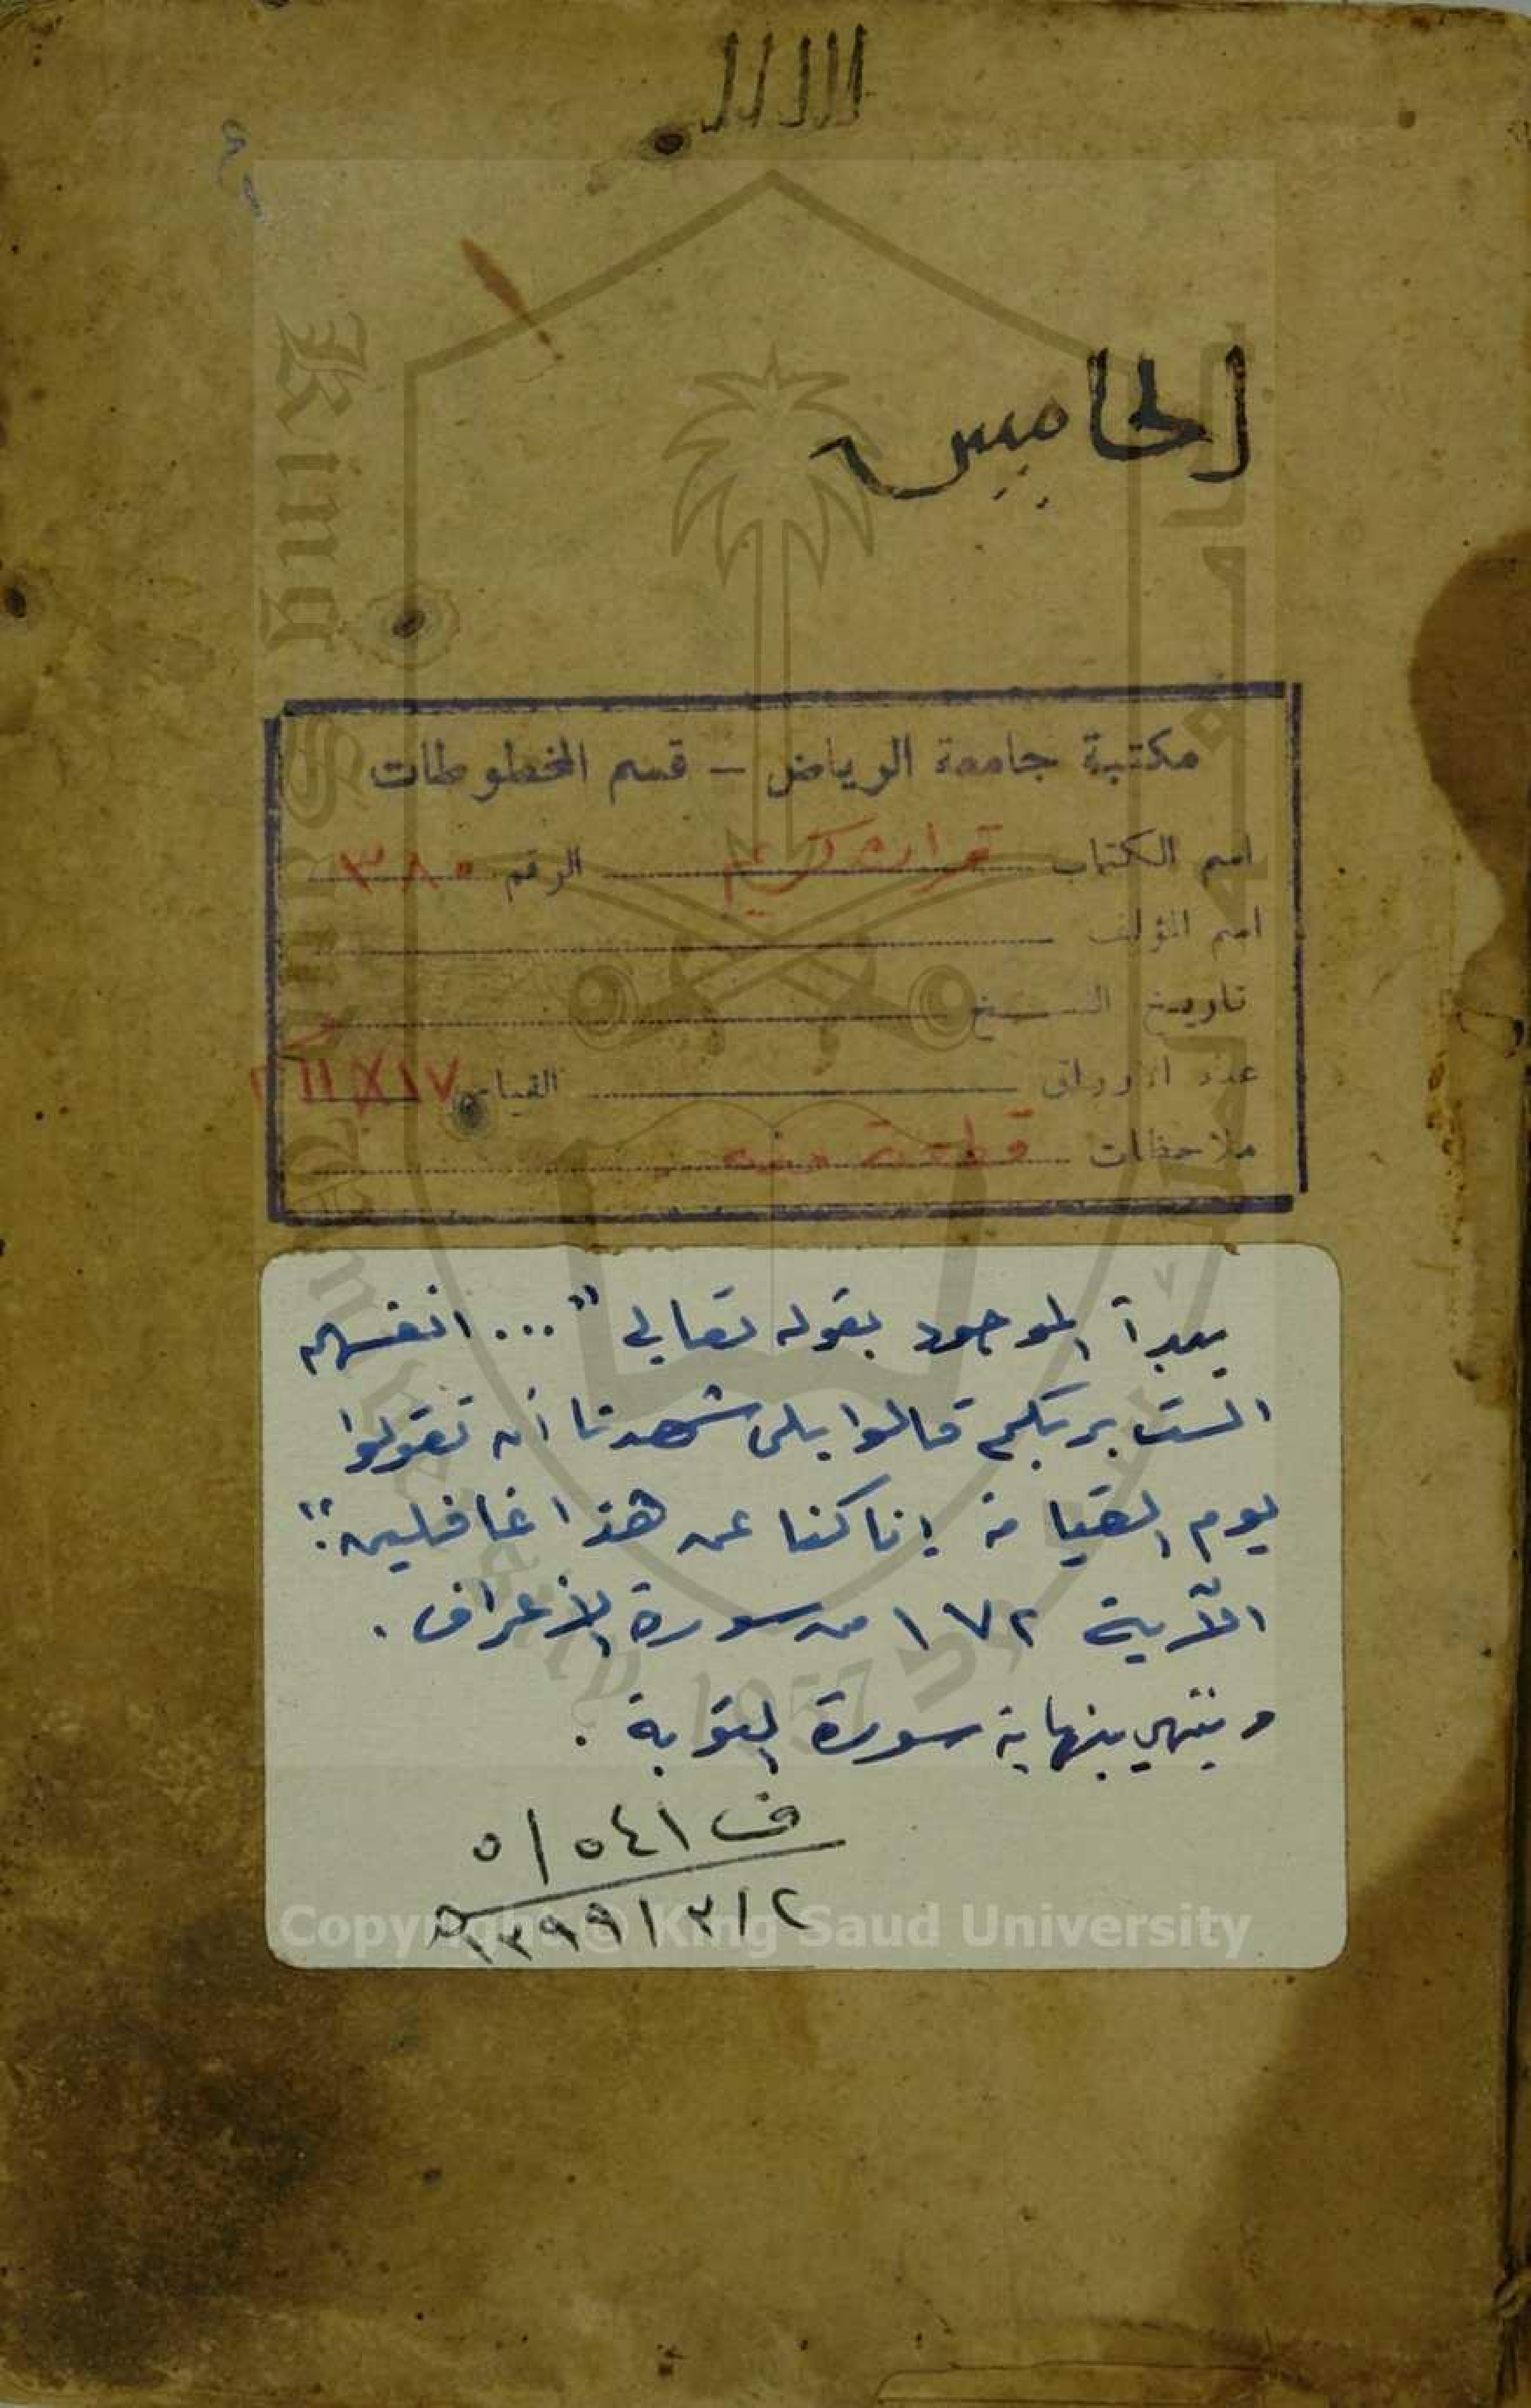 الخامس
مكتبة جامعة الرياض - قسم المخطوطات
اسم الكتاب قرآن كريم الرقم ٣٨٠
اسم المؤلف
تاريخ النسخ
عدد الأوراق القياس ١٧X
ملاحظات قطعة منه
يبدأ الموجود بقوله تعالى "... انفسهم
الست بربكم قالوا بلى شهدنا أن تقولوا
يوم القيامة إنا كنا عن هذا غافلين".
الآية ١٧٢ من سورة الأعراف.
وينتهي بنهاية سورة التوبة.
ف ٥٤١ / ٥
١٣٩٩/٣/٢هـ
King Saud University
1957
Copyright © King Saud University